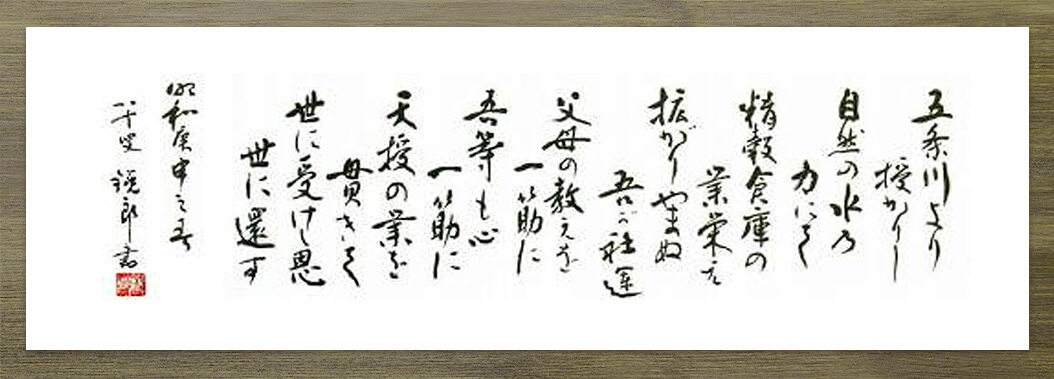 五条川より
授かりし
自然の水の
力にて
精穀倉庫の
業栄え
拡がりやまぬ
吾が社運
父母の教えを
一筋に
吾等も心
一筋に
天授の業を
貫きて
世に受けし恩
世に還す
昭和庚申之春
八十叟 書